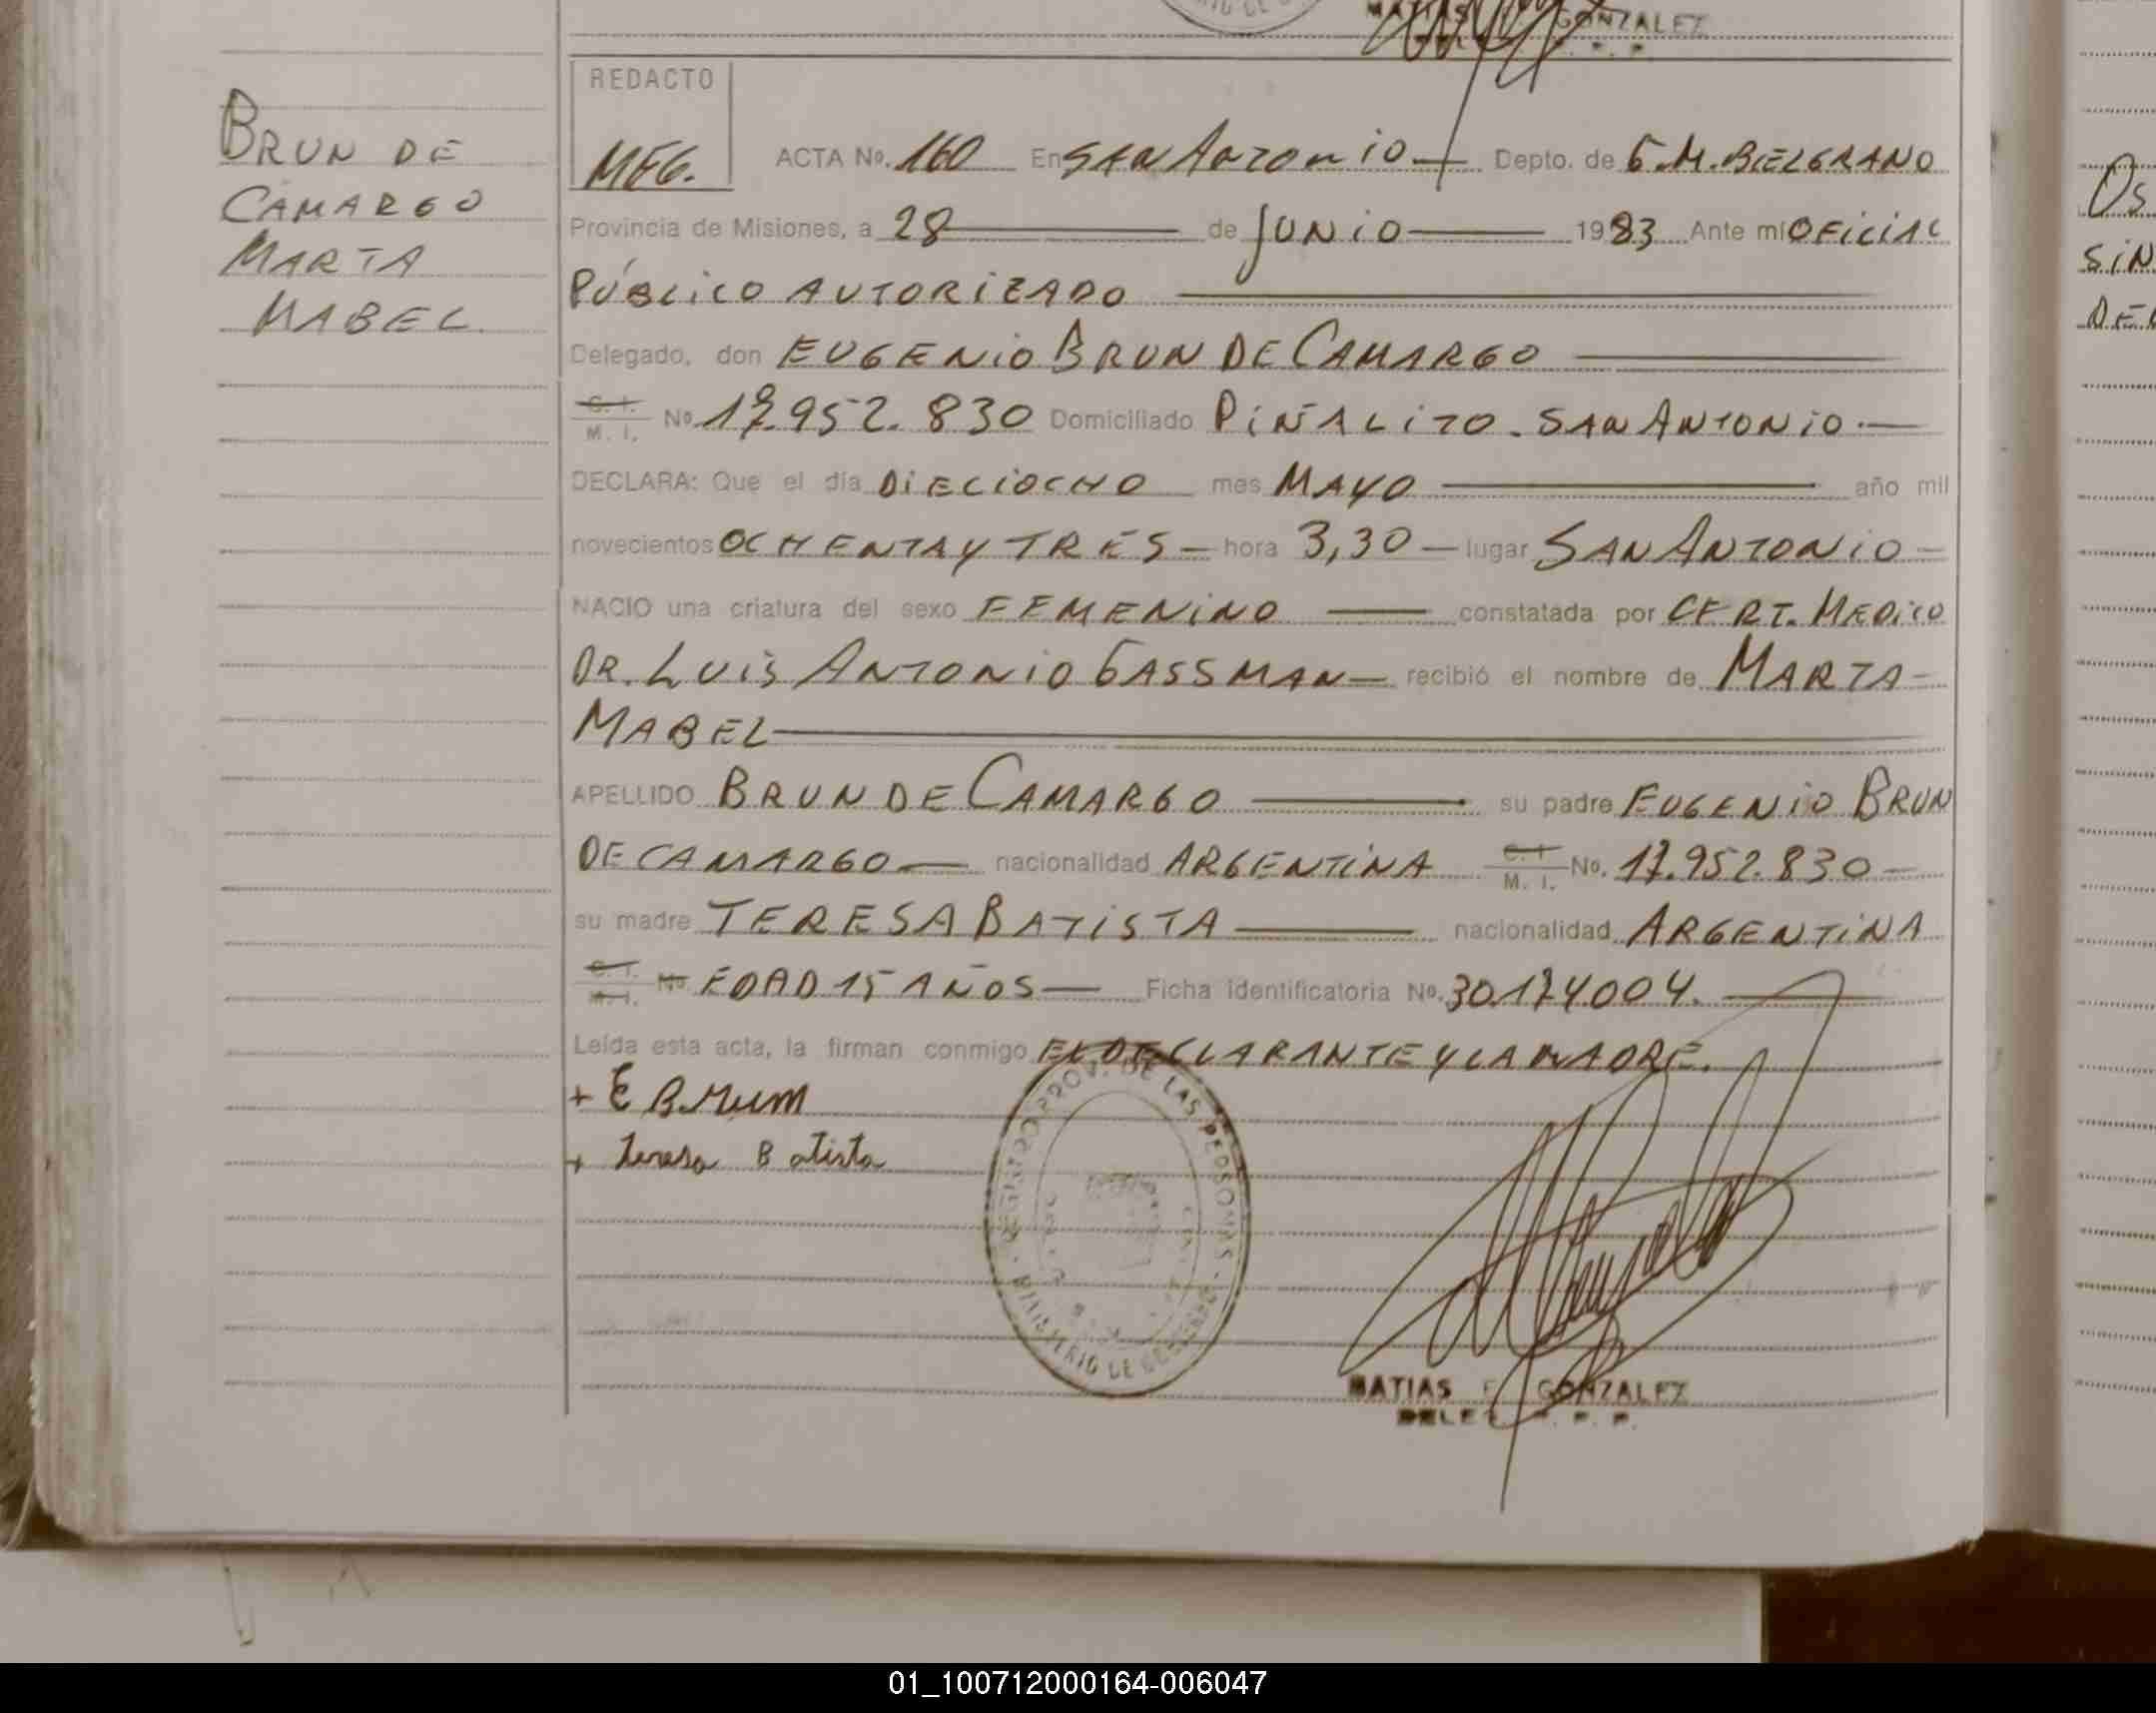 MATIAS GONZALEZ
REDACTO
MEG.
BRUN DE
CAMARGO
MARTA
MABEL.
ACTA No. 160 En SAN ANTONIO Depto. de G.M. BELGRANO
Provincia de Misiones, a 28 de JUNIO 1983 Ante mi OFICIAL
PÚBLICO AUTORIZADO
Delegado, don EUGENIO BRUN DE CAMARGO
C. I. M. I. No 17.952.830 Domiciliado PIÑALITO. SAN ANTONIO.
DECLARA: Que el día DIECIOCHO mes MAYO año mil
novecientos OCHENTA Y TRES hora 3,30 lugar SAN ANTONIO
NACIO una criatura del sexo FEMENINO constatada por CERT. MEDICO
DR. LUIS ANTONIO GASSMAN recibió el nombre de MARTA
MABEL
APELLIDO BRUN DE CAMARGO su padre EUGENIO BRUN
DE CAMARGO nacionalidad ARGENTINA C. I. M. I. No. 17.952.830
su madre TERESA BATISTA nacionalidad ARGENTINA
C. I. M. I. No EDAD 15 AÑOS Ficha identificatoria No. 30.174004.
Leída esta acta, la firman conmigo EL DECLARANTE Y LA MADRE.
+ E Brum
+ Teresa Batista
REGISTRO PROV. DE LAS PERSONAS - MINISTERIO DE GOBIERNO
MATIAS E. GONZALEZ
01_100712000164-006047